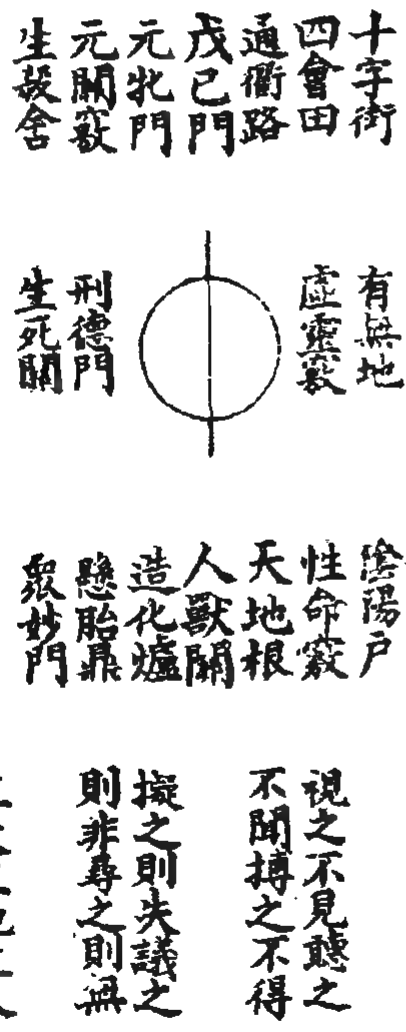 十字街
四會田
通衢路
戊己門
元牝門
元關竅
生殺舍
有無地
虛靈竅
刑德門
生死關
陰陽戶
性命竅
天地根
人獸關
造化爐
懸胎鼎
眾妙門
視之不見聽之
不聞搏之不得
擬之則失議之
則非尋之則無